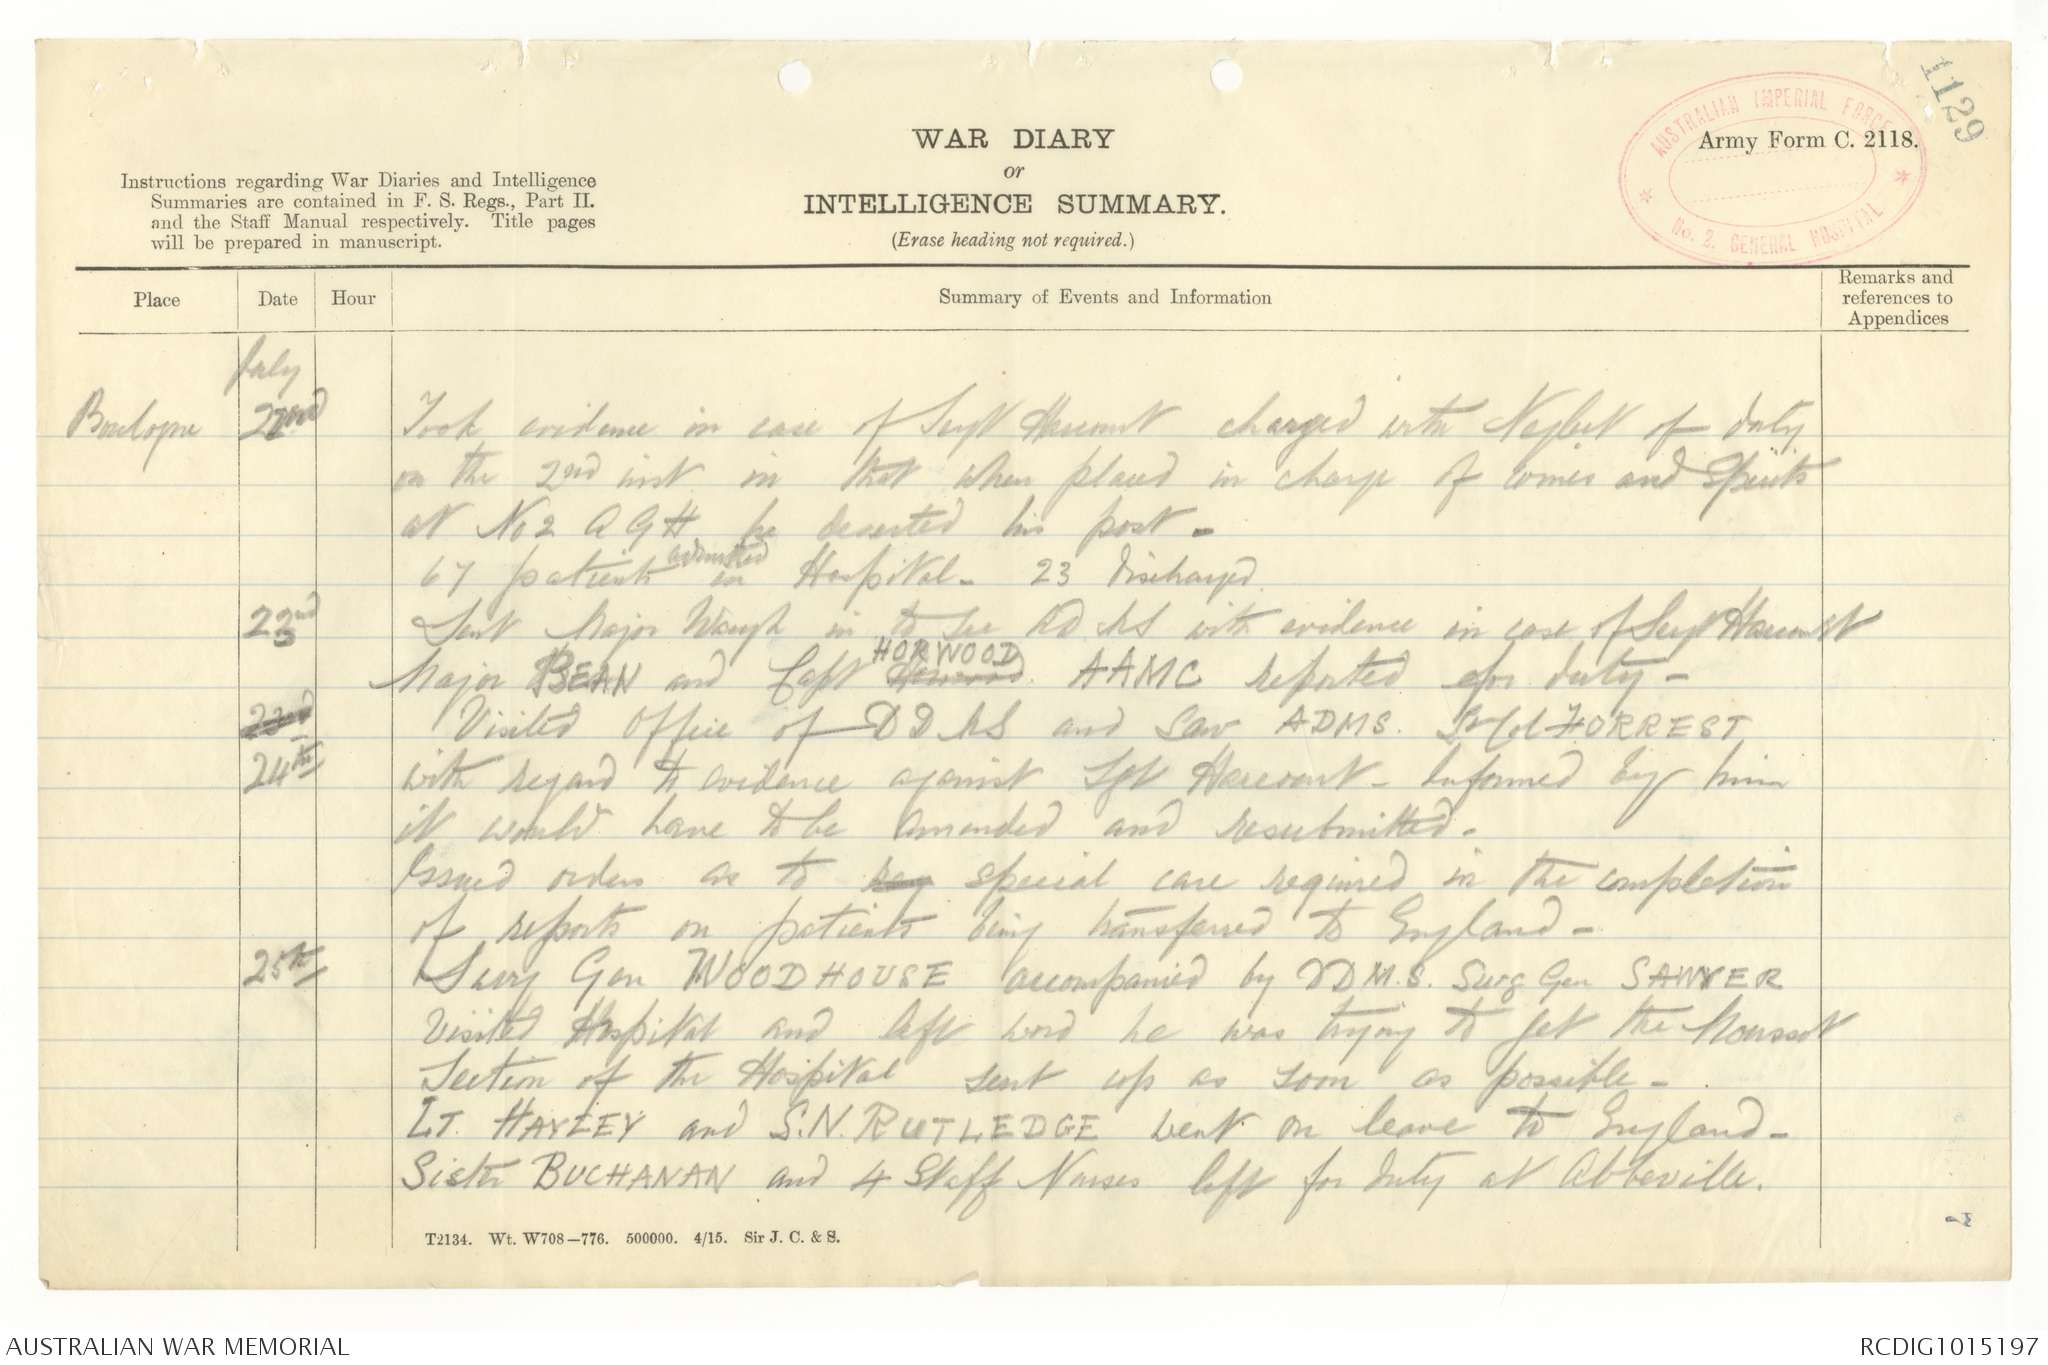 1129
AUSTRALIAN IMPERIAL FORCE
No. 2. GENERAL HOSPITAL
Army Form C. 2118.
WAR DIARY
or
INTELLIGENCE SUMMARY.
(Erase heading not required.)
Instructions regarding War Diaries and Intelligence
Summaries are contained in F. S. Regs., Part II.
and the Staff Manual respectively. Title pages
will be prepared in manuscript.
Place Date Hour Summary of Events and Information Remarks and references to Appendices
July
Boulogne 22nd Took evidence in case of Sergt Harcourt charged with Neglect of duty
on the 2nd inst. in that when placed in charge of wines and spirits
at No 2 A G H he deserted his post -
67 patients admitted in Hospital - 23 Discharged
23 Sent Major Waugh in to see ADMS with evidence in case of Sergt Harcourt
Major BEAN and Capt HORWOOD AAMC reported for duty -
22nd Visited Office of DDMS and saw ADMS. Lt Col FORREST
24th with regard to evidence against Sgt Harcourt - Informed by him
it would have to be amended and resubmitted -
Issued orders as to special care required in the completion
of reports on patients being transferred to England -
25th Surg Gen WOODHOUSE accompanied by DDM.S. Surg Gen SAWYER
Visited Hospital and left word he was trying to get the Moussot
Section of the Hospital sent up as soon as possible -
LT. HAYLEY and S.N. RUTLEDGE went on leave to England -
Sister BUCHANAN and 4 Staff Nurses left for duty at Abbeville.
T2134. Wt. W708-776. 500000. 4/15. Sir J. C. & S.
AUSTRALIAN WAR MEMORIAL
RCDIG1015197